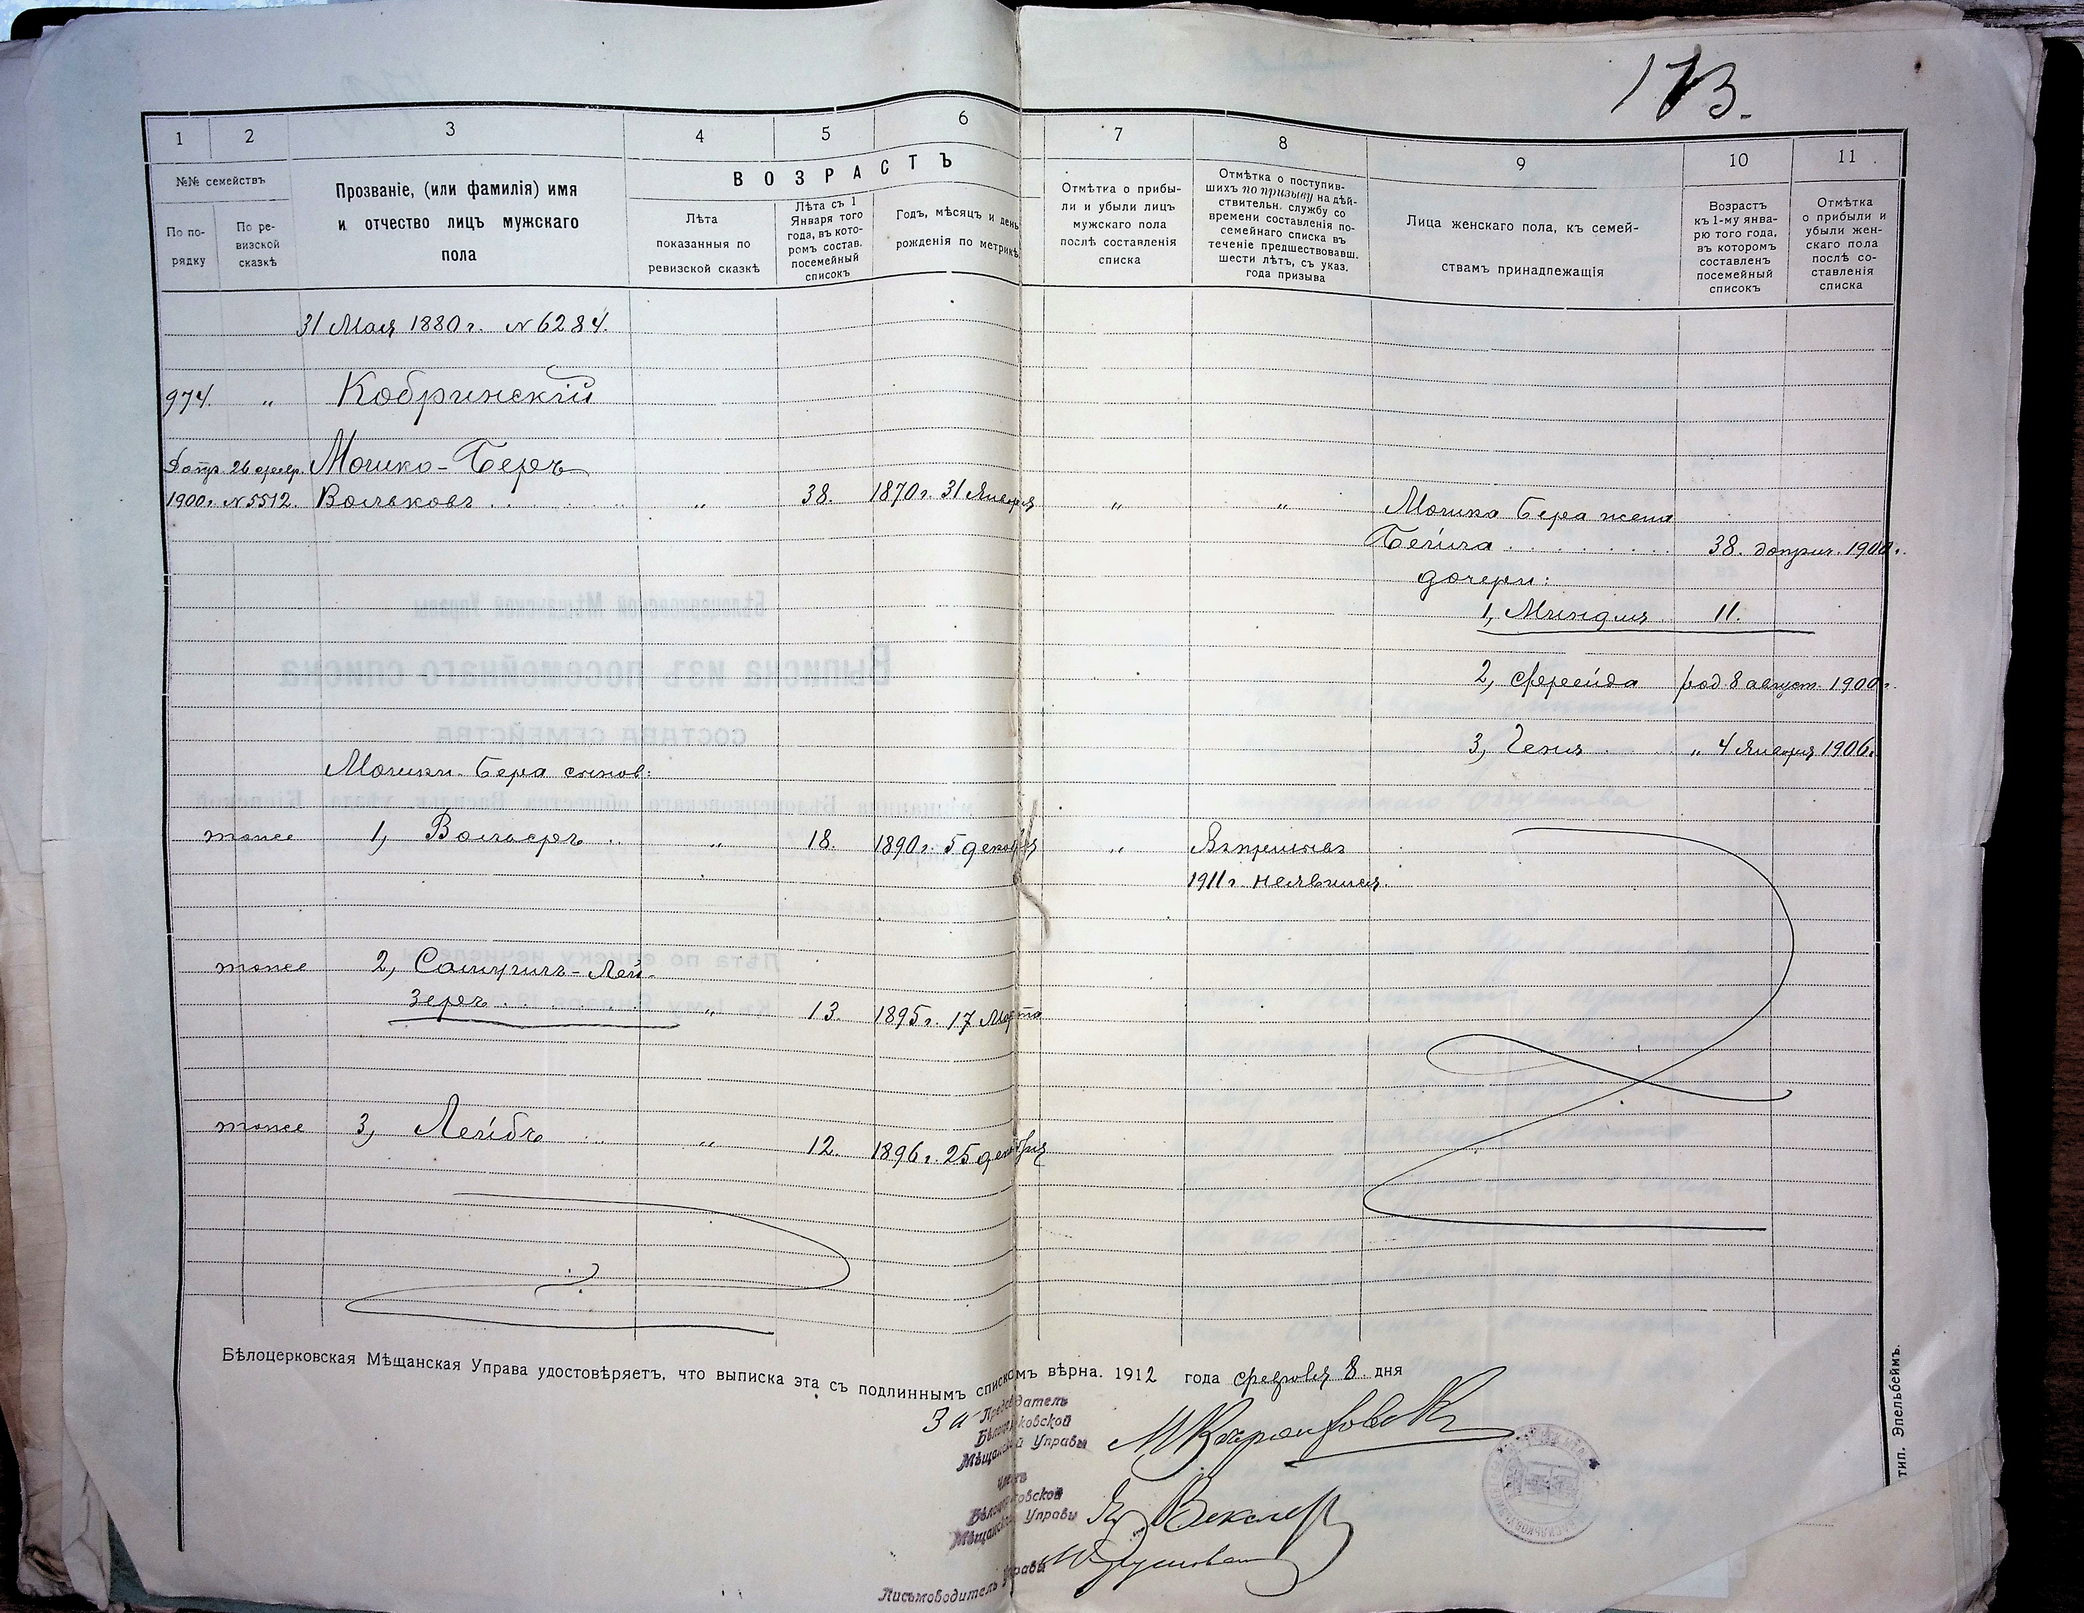 173.
1 2 3 4 5 6 7 8 9 10 11
№№ семействъ
По по-
рядку
По ре-
визской
сказкѣ
Прозваніе, (или фамилія) имя
и отчество лицъ мужскаго
пола
ВОЗРАСТЪ
Лѣта
показанныя по
ревизской сказкѣ
Лѣта съ 1
Января того
года, въ кото-
ромъ состав.
посемейный
списокъ
Годъ, мѣсяцъ и день
рожденія по метрикѣ
Отмѣтка о прибы-
ли и убыли лицъ
мужскаго пола
послѣ составленія
списка
Отмѣтка о поступив-
шихъ по призыву на дѣй-
ствительн. службу со
времени составленія по-
семейнаго списка въ
теченіе предшествовавш.
шести лѣтъ, съ указ.
года призыва
Лица женскаго пола, къ семей-
ствамъ принадлежащія
Возрастъ
къ 1-му янва-
рю того года,
въ которомъ
составленъ
посемейный
списокъ
Отмѣтка
о прибыли и
убыли жен-
скаго пола
послѣ со-
ставленія
списка
31 Мая 1880 г. № 6284.
974. „ Кобринскій
26 февр. Мошко-Беръ
1900 г. № 5512. Вольковъ „ 38. 1870 г. 31 Января „ „
Мошка Бера жена
Бейла 38. 1900 г.
дочери:
1, Миндля 11.
2, Фрейда род. 8 август. 1900 г.
3, Геня „ 4 Января 1906 г.
Мошки-Бера сынов:
тоже 1, Вольѳръ „ 18. 1890 г. 5 декабря „
1911 г. неявился.
тоже 2, Самуилъ-Лей-
зеръ „ 13. 1895 г. 17 Марта
тоже 3, Лейбъ „ 12. 1896 г. 25 декабря
Бѣлоцерковская Мѣщанская Управа удостовѣряетъ, что выписка эта съ подлиннымъ спискомъ вѣрна. 1912 года февраля 8 дня
За Предсѣдатель
Бѣлоцерковской
Мѣщанской Управы
Членъ
Бѣлоцерковской
Мѣщанской Управы
Я. Векслеръ
Письмоводитель Управы
тип. Эпельбеймъ.